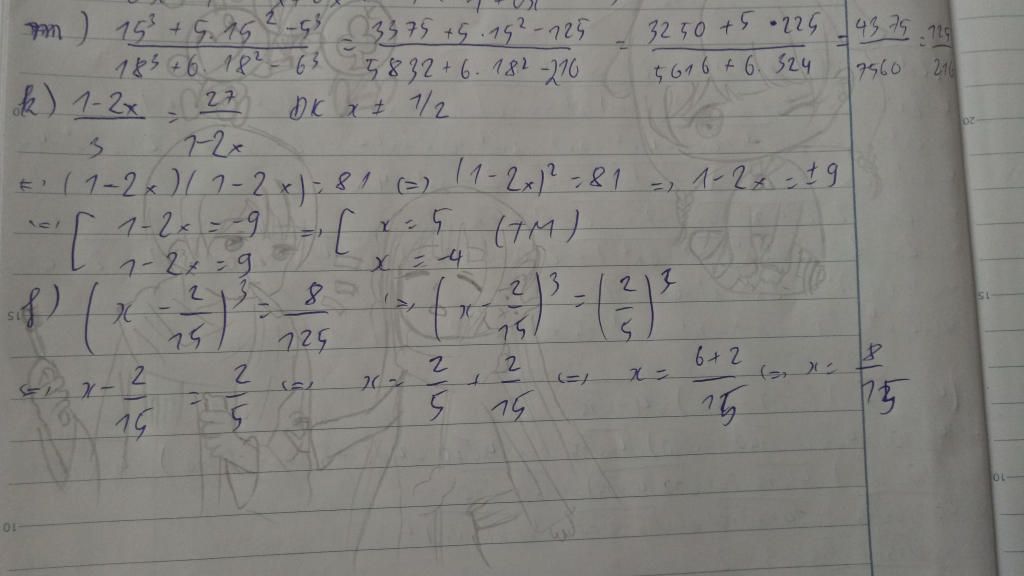 m) (15³ + 5.15² - 5³)/(18³ + 6.18² - 6³) = (3375 + 5.15² - 125)/(5832 + 6.18² - 216) = (3250 + 5.225)/(5616 + 6.324) = 4375/7560 = 125/216
k) (1-2x)/3 = 27/(1-2x) ĐK x ± 1/2
⇔ (1-2x)(1-2x) = 81 ⇔ (1-2x)² = 81 ⇔ 1-2x = ±9
⇔ [ 1-2x = -9 ⇔ [ x = 5 (TM)
1-2x = 9 x = -4
f) (x - 2/15)³ = 8/125 ⇔ (x - 2/15)³ = (2/5)³
⇔ x - 2/15 = 2/5 ⇔ x = 2/5 + 2/15 ⇔ x = (6+2)/15 ⇔ x = 8/15